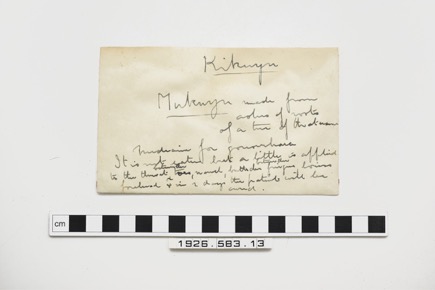 Kikuyu
Mukuyu made from
ashes of roots
of a tree of that name
Medicine for gonorrhoea
It is not eaten but a little is applied
to the throat, toes,
forehead & in 2 days the patient will be
cured.
cm
1926.583.13